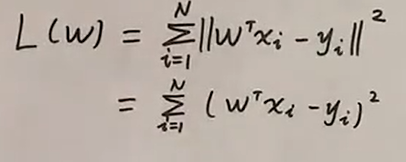 L(w) = \sum_{i=1}^{N} ||w^T x_i - y_i||^2
= \sum_{i=1}^{N} (w^T x_i - y_i)^2